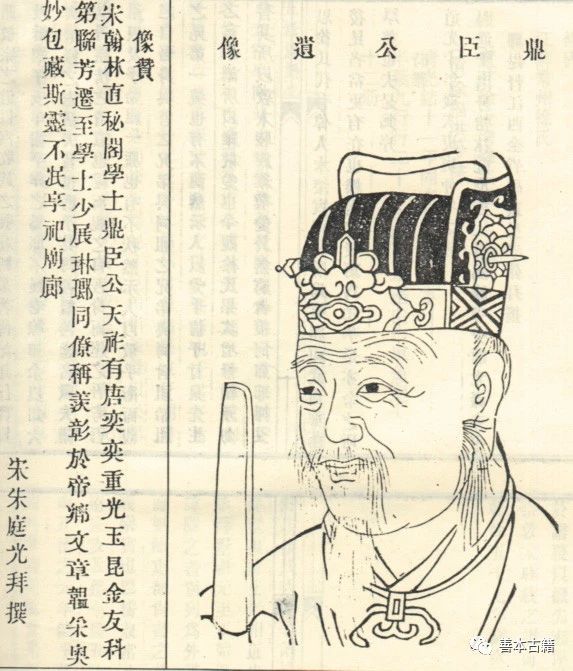 鼎臣公遺像
像贊
宋翰林直秘閣學士鼎臣公天祚有唐奕奕重光玉昆金友科
第聯芳遷至學士少展琳瑯同僚稱羨彰於帝鄉文章韞采奥
妙包藏斯靈不泯享祀廟廊
宋朱庭光拜撰
善本古籍